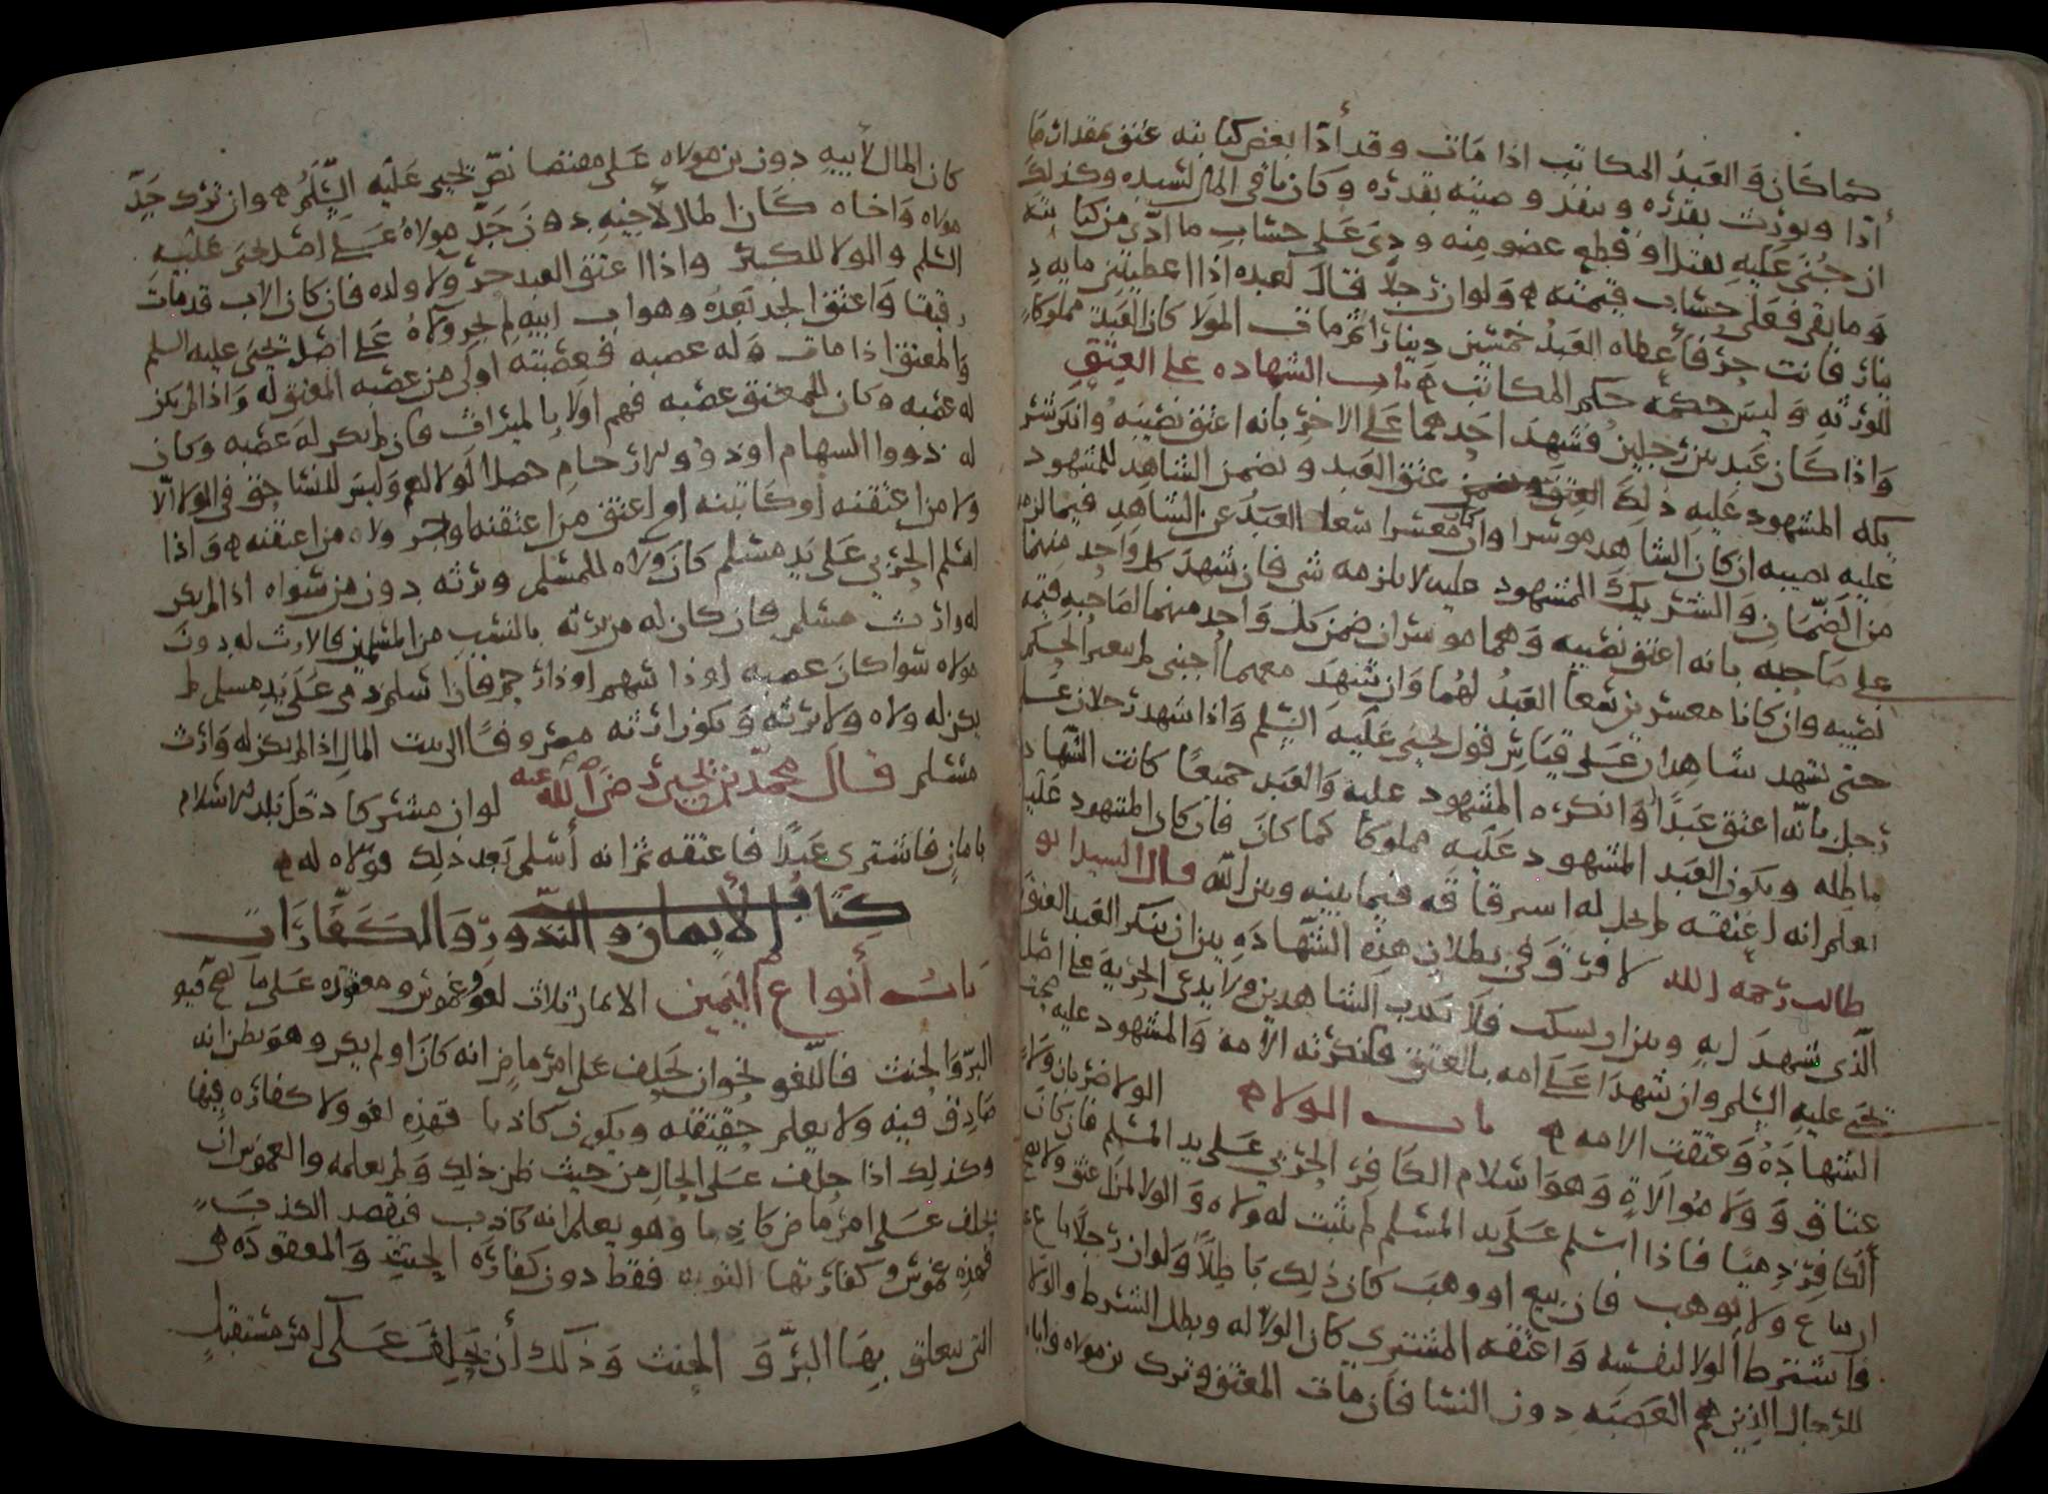 كما كان والعبد المكاتب اذا مات وقد أدا بعض كتابته عتق بمقدار ما
أدّا ويورث بقدره وينفذ وصيته بقدره وكان باقى المال لسيده وكذلك
ان جُنى عليه بقتل او قطع عضو منه ودى على حساب ما ادّى من كتابته
وما بقى فعلى حساب قيمته ولو ان رجلا قال لعبده اذا اعطيتنى مايه د
ينار فانت حر فأعطاه العبد خمسين دينارا ثم مات المولا كان العبد مملوكا
للورثه وليس حكمه حكم المكاتب باب الشهاده على العتق
واذا كان عبد بين رجلين فشهد احدهما على الاخر بانه اعتق نصيبه وانكر شر
يكه المشهود عليه ذلك عتق العبد ويضمن الشاهد للمشهود
عليه نصيبه ان كان الشاهد موسرا وان كان معسرا سعا العبد عن الشاهد فيما لزمه
من الضمان والشريك المشهود عليه لا يلزمه شى فان شهد كل واحد منهما
على صاحبه بانه اعتق نصيبه وهما موسران ضمن كل واحد منهما لصاحبه قيمه
نصيبه وان كانا معسرين سعا العبد لهما وان شهد معهما اجنبى لم يتغير الحكم
حتى يشهد شاهدان على قياس قول يحيى عليه السلم واذا شهد رجلان على
رجل بانّه اعتق عبدًا وانكره المشهود عليه والعبد جميعًا كانت الشهاد
باطله ويكون العبد المشهود عليه مملوكا كما كان فان كان المشهود عليه
يعلم انه اعتقه لم يحل له استرقاقه فيما بينه وبين الله قال السيد ابو
طالب رحمه الله لا فرق فى بطلان هذه الشهاده بين ان ينكر العبد العتق
الّذى شهد به وبين ان يسكت فلا يكذب الشاهدين ولا يدعى الحريه على اصل
يحيى عليه السلم وان شهدا على امه بالعتق فانكرته الامه والمشهود عليه صحت
الشهادة وعتقت الامه باب الولا الولا ضربان ولاء
عتاق وولا موالاة وهو اسلام الكافر الحربي على يد المسلم فان كان
الكافر ذميا فاذا اسلم على يد المسلم لم يثبت له ولاه والولا لمن اعتق ولا يصح
ان يباع ولا يوهب فان بيع او وهب كان ذلك باطلاً ولو ان رجلا باع
فاشترط الولا لنفسه واعتقه المشترى كان الولا له وبطل الشرط والولا
للرجال الذين هم العصبه دون النسا فان مات المعتق وترك بن مولاه واباه
كان المال لأبيه دون بن مولاه على مقتضا نص يحيى عليه السّلم وان ترك جدّ
مولاه واخاه كان المال لأخيه دون جد مولاه على اصل يحيى عليه
السلم والولا للكبر واذا اعتق العبد جر ولا ولده فان كان الاب قد مات
رقيقا واعتق الجد بعده وهو اب ابيه لم يجر ولاه على اصل يحيى عليه السلم
والمعتق اذا مات وله عصبه فعصبته اولى من عصبه المعتق له واذا لم يكن
له عصبه وكان للمعتق عصبه فهم اولا بالميراث فان لم يكن له عصبه وكان
له ذووا السهام او ذوو الارحام حصل الولا لهم وليس للنسا حق فى الولا الّا
ولا من اعتقنه او كاتبنه او اعتق من اعتقنه او جر ولاه من اعتقنه واذا
اسلم الحربي على يد مسلم كان ولاه للمسلم ويرثه دون من سواه اذا لم يكن
له وارث مسلم فان كان له من يرثه بالنسب من المسلمين فالارث له دون
مولاه سوا كان عصبه او ذا سهم او ذا رحم فان اسلم ذمى على يد مسلم لم
يكن له ولاه ولا يرثه ويكون ارثه مصروفًا الى بيت المال اذا لم يكن له وارث
مسلم قال محمد بن يحيى رضي الله عنه لو ان مشركا دخل بلد الاسلام
بامان فاشترى عبدًا فاعتقه ثم انه أسلم بعد ذلك فولاه له
كتاب الأيمان والنّذور والكفّارات
باب أنواع اليمين الايمان ثلاث لغو وغموس ومعقوده على ما يصح فيه
البرّ والحنث فاللّغو نحو ان يحلف على امر ماض انه كان او لم يكن وهو يظن انه
صادق فيه ولا يعلم حقيقته ويكون كاذبا فهذه لغو ولا كفاره فيها
وكذلك اذا حلف على الحال من حيث ظن ذلك ولم يعلمه والغموس ان
يحلف على امر ماض كاذبا وهو يعلم انه كاذب فيقصد الكذب
فهذه غموس وكفارتها التوبه فقط دون كفاره الحنث والمعقوده هى
التى يتعلق بها البرّ والحنث وذلك أن يحلف على امر مستقبل